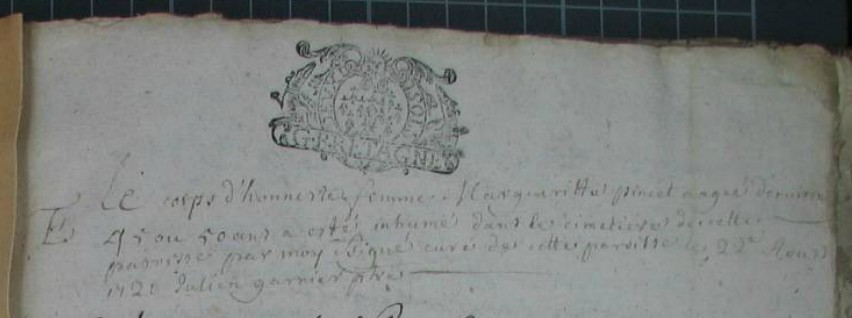 SOL
BRETAGNE
Le corps d'honneste femme Margueritte pincet aagee d'environ
45 ou 50 ans a esté inhumé dans le cimetiere de cette
paroisse par moy signé curé de cette paroisse le 22e Aoust
Julien garnier ptre